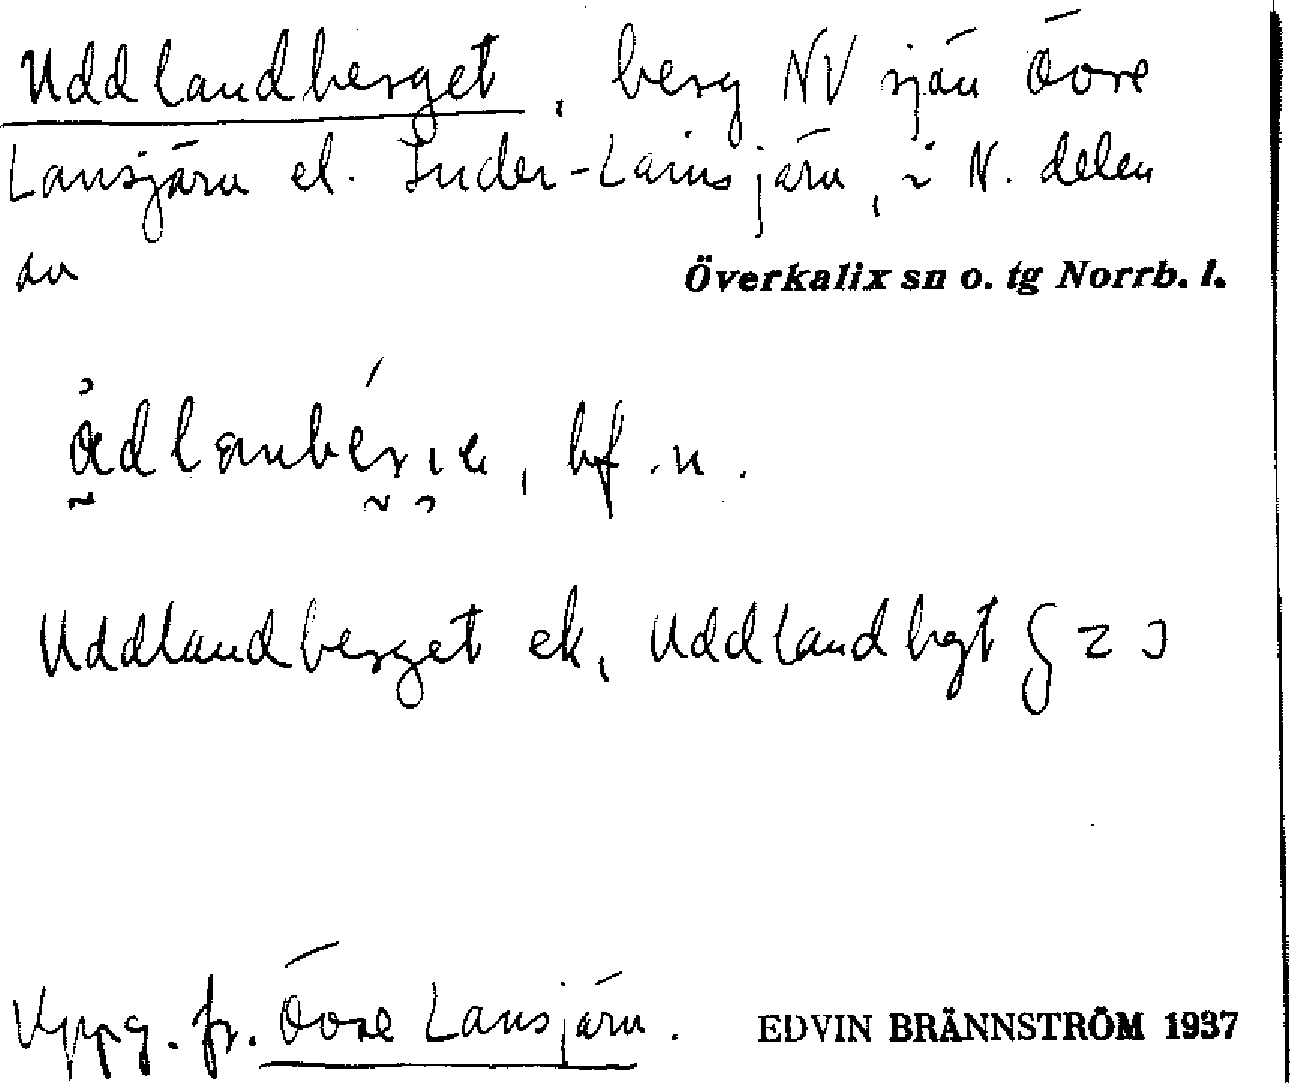 Uddlandberget, berg NV sjön Övre
Lansjärv el. Inder-Lainsjärv, i N. delen
av
Överkalix sn o. tg Norrb. l.
bf. n.
Uddlandberget ek, Uddlandbgt
Uppg. fr. Övre Lansjärv.
EDVIN BRÄNNSTRÖM 1937